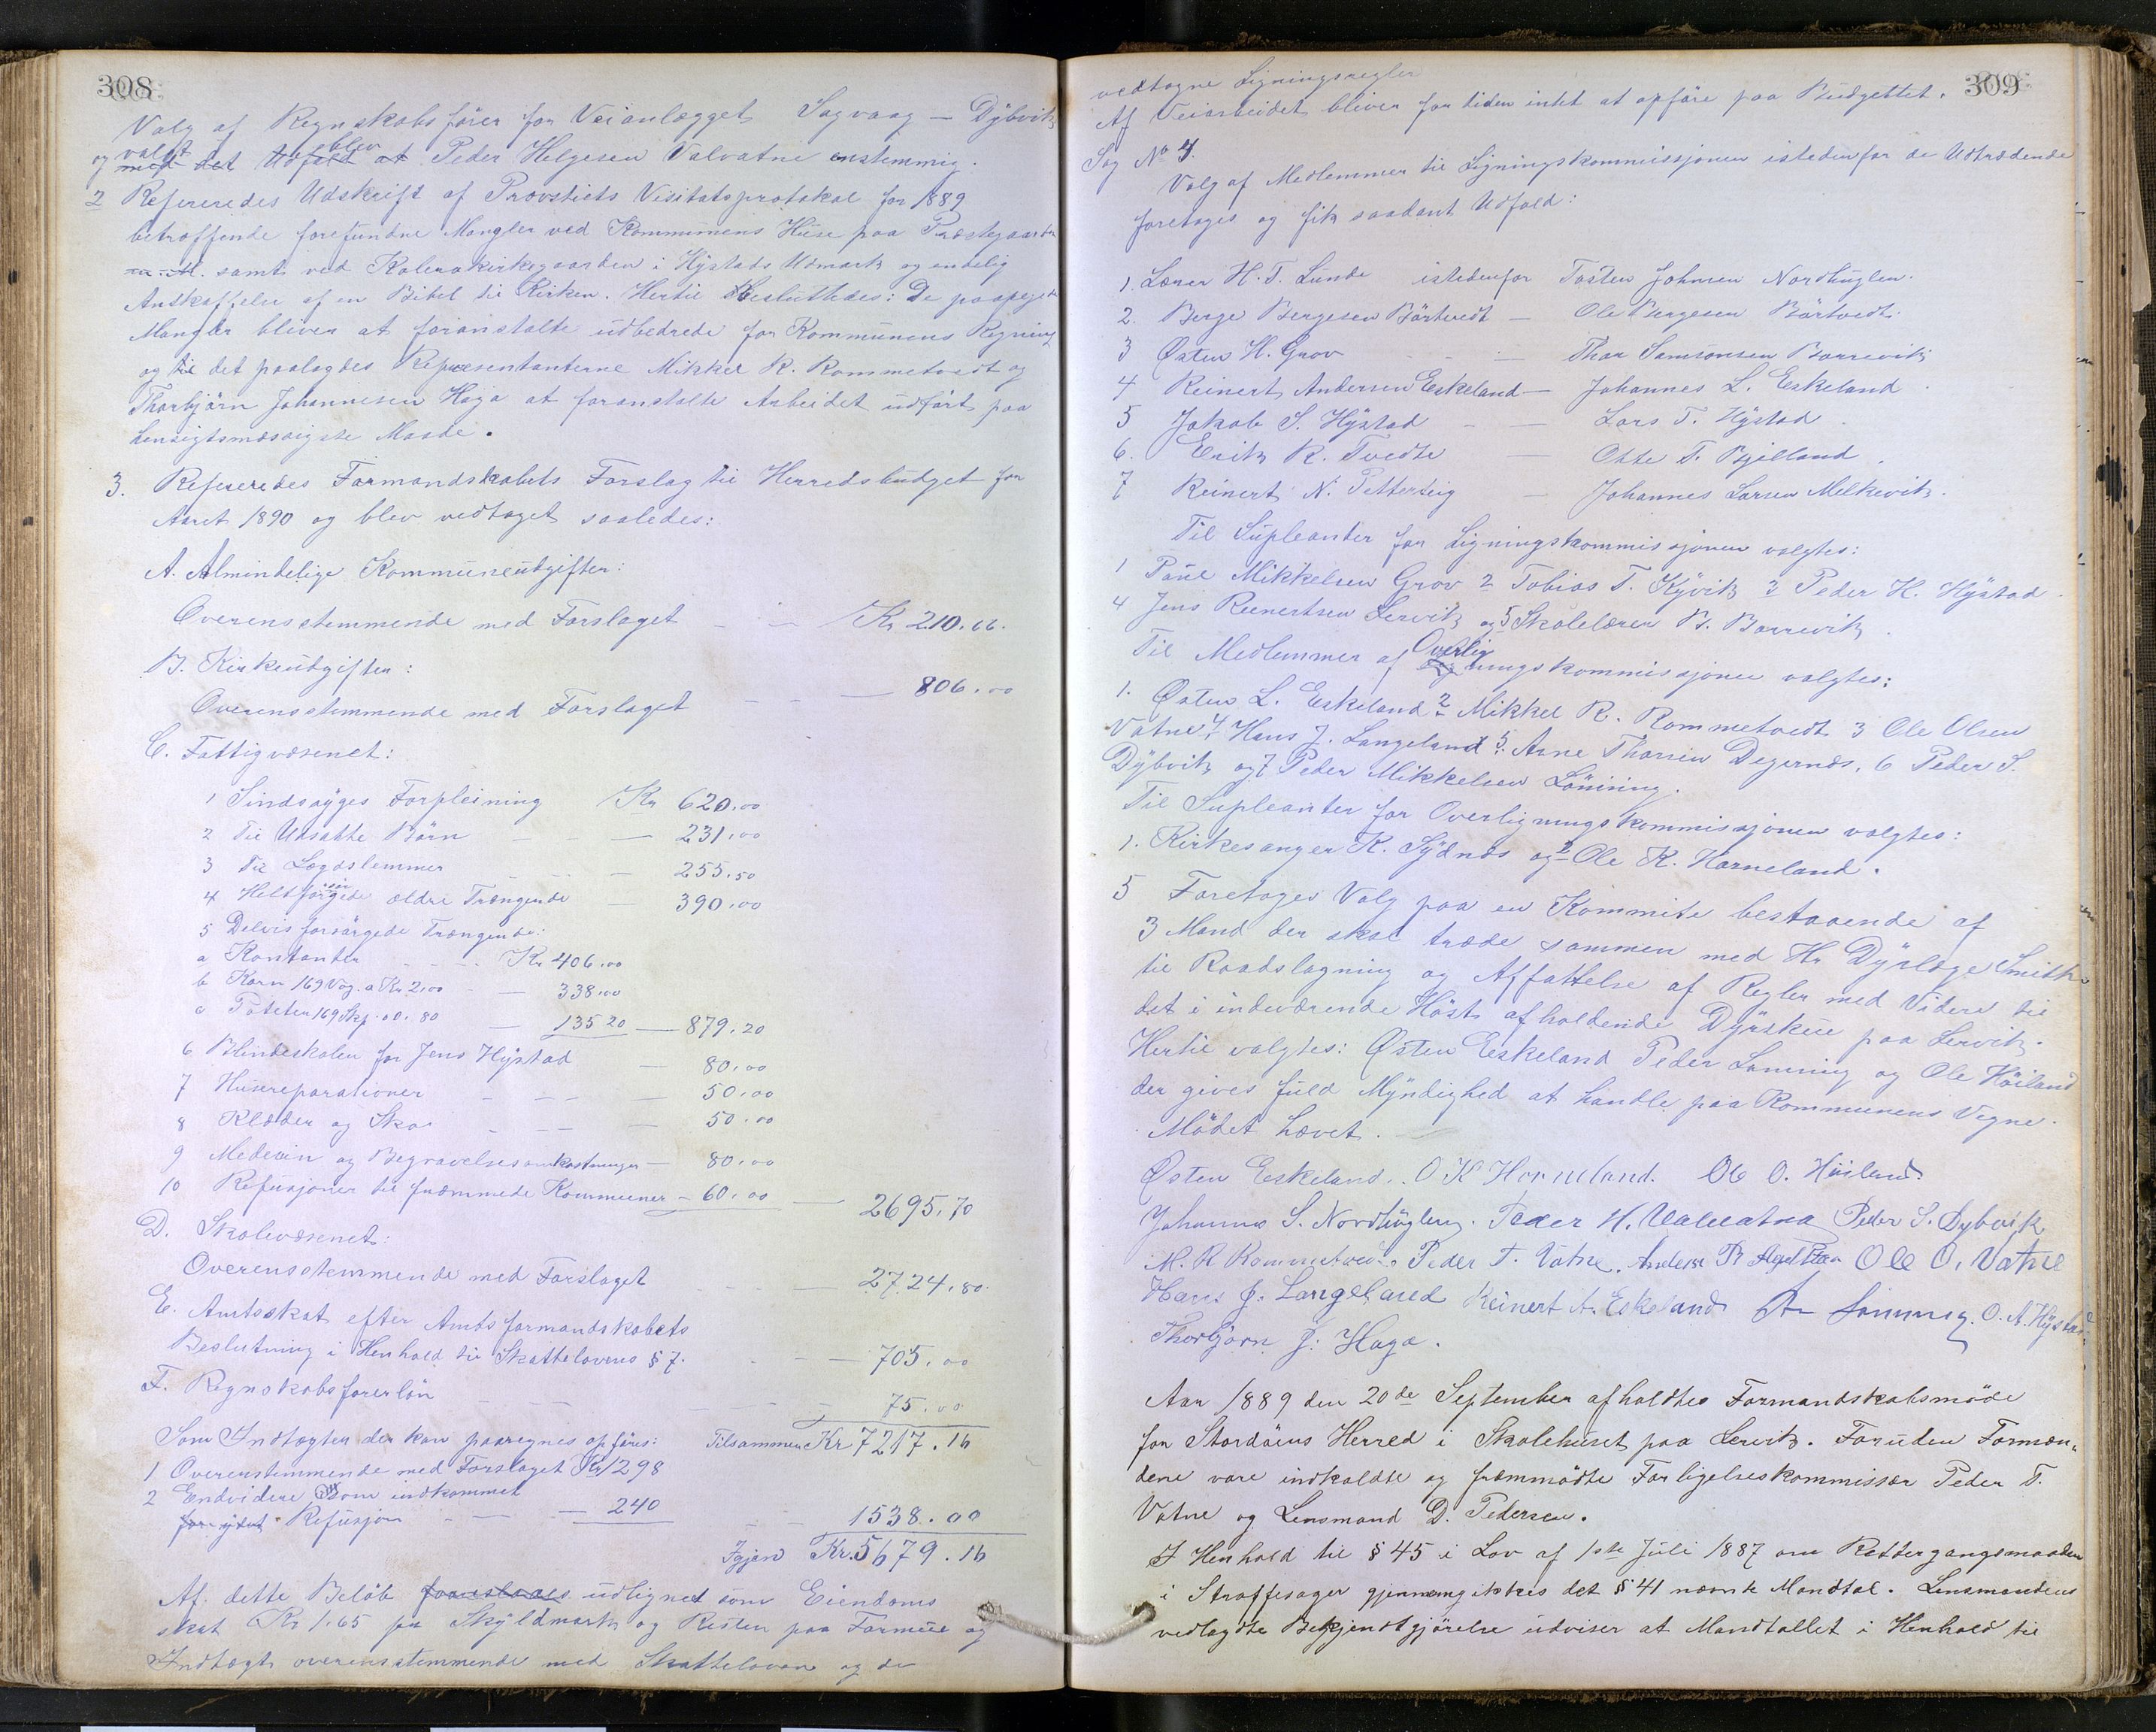 308
Valg af Regnskabsfører for Veianlægget Sagvaag — Dybvik
og valgt blev Peder Helgesen Valvatne enstemmig.
2 Refereredes Udskrift af Provstiets Visitatsprotokol for 1889
betræffende forefundne Mangler ved Kommunens Huse paa Præstegaarden
samt ved Kolerakirkegaarden i Hystads Udmark og endelig
Anskaffelse af en Bibel til Kirken. Hertil besluttedes: De paapegede
Mangler bliver at foranstalte udbedrede for Kommunens Regning
og til det paalagdes Repræsentanterne Mikkel R. Rommetvedt og
Thorbjörn Johannesen Haga at foranstalte Arbeidet udført paa
hensigtsmæssigste Maade.
3. Refereredes Formandskabets Forslag til Herredsbudget for
Aaret 1890 og blev vedtaget saaledes:
A. Almindelige Kommuneudgifter:
Overensstemmende med Forslaget — Kr 210.66.
B. Kirkeudgifter:
Overensstemmende med Forslaget — 806.00
C. Fattigvæsenet:
1 Sindssyges Forpleining Kr 620.00
2 Til Udsatte Börn — 231.00
3 Til Lægdslemmer — 255.50
4 Heltforsörgede ældre Trængende — 390.00
5 Delvis forsörgede Trængende:
a Kontanter Kr 406.00
b Korn 169 Vog. a Kr. 2.00 — 338.00
c Poteter 169 Skp. a 0.80 — 135 20 — 879.20
6 Blindeskolen for Jens Hystad — 80.00
7 Husereparationer — 50.00
8 Klæder og Sko — 50.00
9 Medecin og Begravelsesomkostninger — 80.00
10 Refusjoner til fremmede Kommuner — 60.00 — 2695.70
D. Skolevæsenet:
Overensstemmende med Forslaget — 2724.80.
E. Amtsskat efter Amtsformandskabets
Beslutning i Henhold til Skattelovens § 7. — 705.00
F. Regnskabsførerlön — 75.00
Som Indtægter der kan paaregnes opføres: Tilsammen Kr 7217.16
1 Overenstemmende med Forslaget Kr 1298
2 Endvidere som indkommet
for ydet Refusjon — 240 — 1538.00
Igjen Kr. 5679.16
Af dette Beløb foreslaaes udlignet som Eiendoms
skat Kr 1.65 pr Skyldmark og Resten paa Formue og
Indtægt overensstemmende med Skatteloven og de
309
vedtagne Ligningsregler
Af Veiarbeidet bliver for tiden intet at opføre paa Budgettet.
Sag No 4.
Valg af Medlemmer til Ligningskommissjonen istedenfor de Udtrædende
foretoges og fik saadant Udfald:
1. Lærer H. T. Lunde istedenfor Tosten Johnsen Nordhuglen.
2. Berge Bergesen Börtvedt — Ole Bergesen Börtvedt.
3 Østen H. Grov — Thor Samsonsen Borrevik
4 Reinert Andersen Eskeland — Johannes L. Eskeland
5 Jakob S. Hystad — Lars T. Hystad
6. Erik K. Tvedte — Otte T. Bjelland.
7 Reinert N. Petterteig — Johannes Larsen Melkevik.
Til Supleanter for Ligningskommissjonen valgtes:
1 Paul Mikkelsen Grov 2 Tobias T. Kyvik 3 Peder H. Hystad.
4 Jens Reinertsen Lervik og 5 Skolelærer B. Borrevik.
Til Medlemmer af Overligningskommissjonen valgtes:
1. Østen L. Eskeland 2 Mikkel R. Rommetvedt 3 Ole Olsen
Vatne 4. Hans J. Langeland 5. Arne Thorsen Degernæs, 6 Peder S.
Dybvik og 7 Peder Mikkelsen Lönning.
Til Supleanter for Overligningskommissjonen valgtes:
1. Kirkesanger K. Sydnæs og 2 Ole K. Horneland.
5 Foretoges Valg paa en Kommite bestaaende af
3 Mand der skal træde sammen med Hr Dyrlæge Smith
til Raadslagning og Affattelse af Regler med Videre til
det i indeværende Höst afholdende Dyrskue paa Lervik.
Hertil valgtes: Østen Eskeland Peder Lönning og Ole Höiland
der gives fuld Myndighed at handle paa Kommunens Vegne.
Mödet hævet.
Østen Eskeland. O K Horneland. Ole O. Höiland
Johannes S. Nordhuglen. Peder H. Valvatna Peder S. Dybvik
M. R Rommetvedt. Peder T. Vatne. Ole O. Vatne
Hans J. Langeland Reinert A. Eskeland Lönning. O. A. Hystad.
Thorbjørn J. Haga.
Aar 1889 den 20de September afholdtes Formandskabsmöde
for Stordöens Herred i Skolehuset paa Lervik. Foruden Formæn-
dene vare indkaldte og fremmödte Forligelseskommissær Peder T.
Vatne og Lensmand D. Pedersen.
I Henhold til § 45 i Lov af 1ste Juli 1887 om Rettergangsmaaden
i Straffesager gjennemgikkes det § 41 nævnte Mandtal. Lensmandens
vedlagte Bekjendtgjörelse udviser at Mandtallet i Henhold til